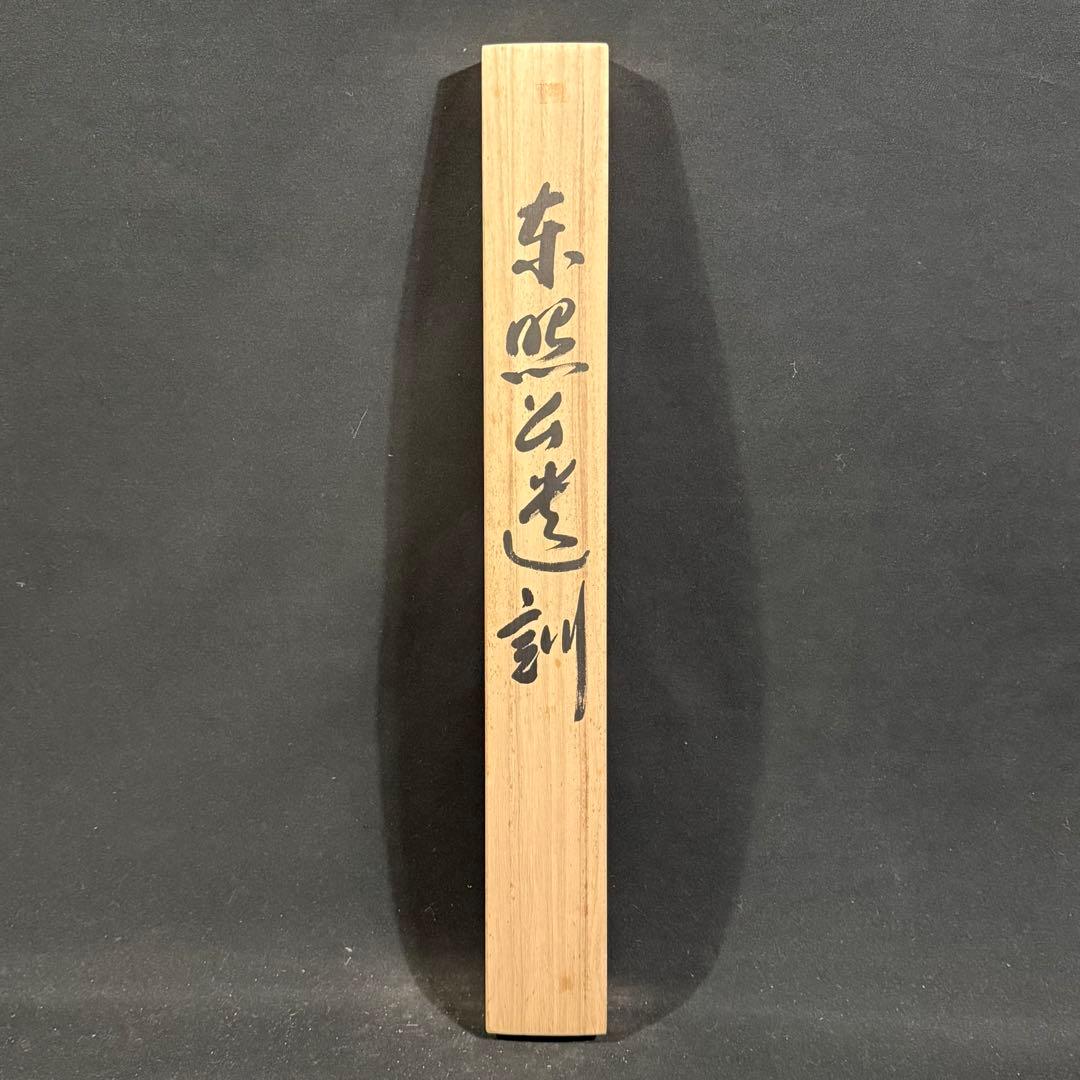 东照公遺訓